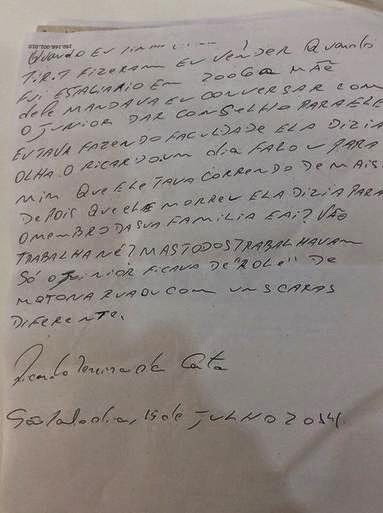 Quando eu
T.R.T FIZERAM EU VENDER QUANDO
FUI ESTAGIARIO EM 2006 A MÃE
DELE MANDAVA EU CONVERSAR COM
O JUNIOR DAR CONSELHO PARA ELE
EU TAVA FAZENDO FACULDADE ELA DIZIA
OLHA O RICARDO UM DIA FALOU PARA
MIM QUE ELE TAVA CORRENDO DEMAIS
DEPOIS QUE ELE MORREU ELA DIZIA PARA
O MEMBRO DA SUA FAMILIA E AI? VÃO
TRABALHA NÉ? MAS TODOS TRABALHAVAM
SÓ O JUNIOR FICAVA DE "ROLE" DE
MOTO NA RUA OU COM UNS CARAS
DIFERENTE.
Ricardo Pereira da
São Paulo dia, 15 de JULHO 2014.